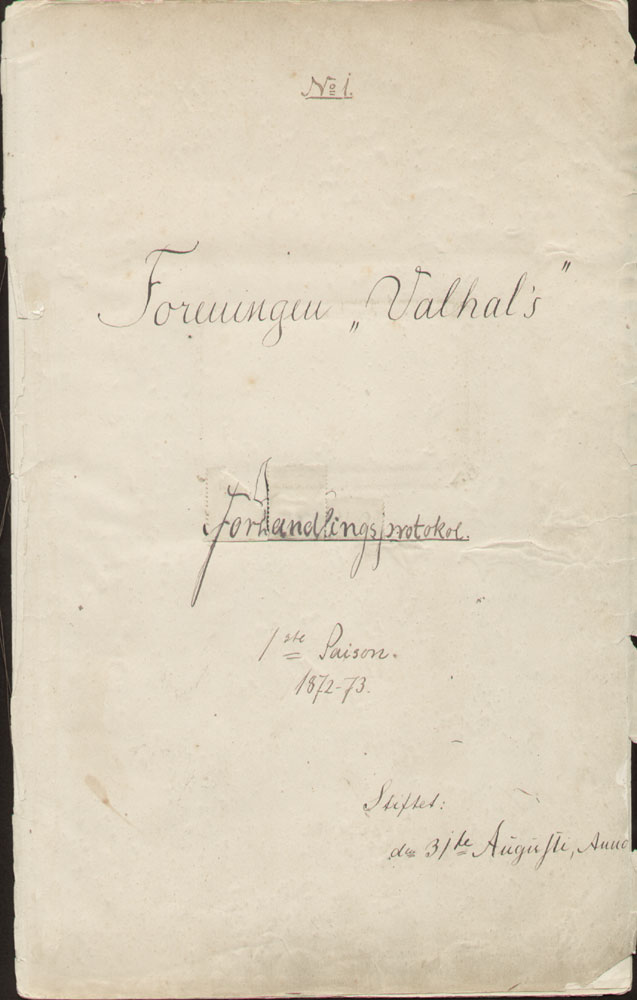 No 1.
Foreningen „Valhal's"
Forhandlingsprotokol.
1ste Saison.
1872-73.
Stiftet:
den 31te Augusti, Anno